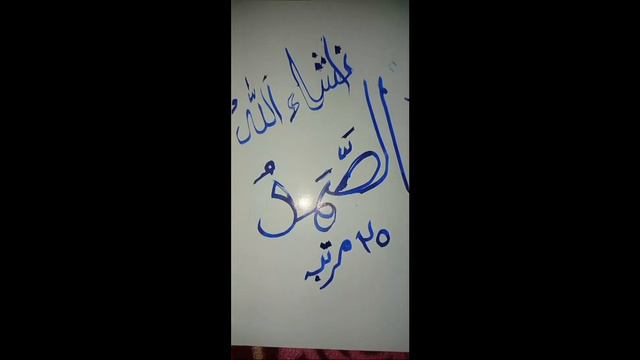 انشاء اللہ
الصَّمَدُ
۲۵ مرتبہ